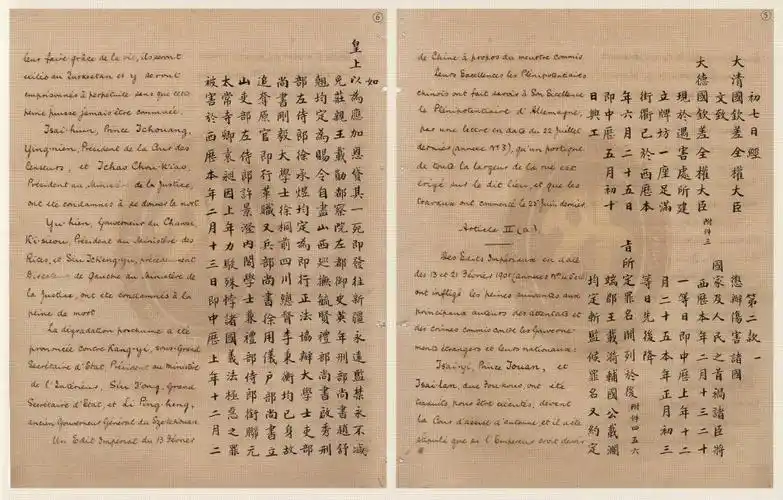 ⑤
de Chine à propos du meurtre commis
Leurs Excellences les Plénipotentiaires
chinois ont fait savoir à Son Excellence
le Plénipotentiaire d'Allemagne,
par une lettre en date du 22 juillet
dernier (annexe Nº 3), qu'un portique
de toute la largeur de la rue est
érigé sur le dit lieu, et que les
travaux ont commencé le 25 juin dernier.
Article II (a).
Des Edits Impériaux en date
des 13 et 21 Février 1901 (annexes Nos 4, 5 et 6)
ont infligé les peines suivantes aux
principaux auteurs des attentats et
des crimes commis contre les Gouverne-
ments étrangers et leurs nationaux:
Tsai-yi, Prince Touan, et
Tsai-lan, duc Fou-kouo, ont été
traduits pour être exécutés, devant
la Cour d'assise d'automne, et il a été
stipulé que si l'Empereur croit devoir
初七日經
大清國欽差全權大臣
文致
大德國欽差全權大臣 附件三
現於遇害處所建
立牌坊一座足滿
街衢已於西歷本
年六月二十五日
即中歷五月初十
日興工
第二款一
懲辦傷害諸國
國家及人民之首禍諸臣將
西歷本年二月十三二十
一等日即中歷上年十二
月二十五本年正月初三
等日先後降
旨所定罪名開列於後 附件四五六
端郡王載漪輔國公載瀾
均定斬監候罪名又約定
⑥
leur faire grâce de la vie, ils seront
exilés au Turkestan et y seront
emprisonnés à perpétuité sans que cette
peine puisse jamais être commuée.
Tsai-hiun, Prince Tchouang,
Ying-nien, Président de la Cour des
Censeurs, et Tchao Chou-k'iao,
Président au Ministère de la Justice,
ont été condamnés à se donner la mort
Yu-hien, Gouverneur du Chansi,
K'i-sieou, Président au Ministère des
Rites, et Siu Tcheng-yu, précédemment
de Gauche au Ministère de
la Justice, ont été condamnés à la
peine de mort
La dégradation posthume a été
prononcée contre Kang-yi, sous-Grand
Secrétaire d'Etat, Président au Ministère
de l'Intérieur, Siu T'ong, Grand
Secrétaire d'Etat, et Li Ping-heng,
ancien Gouverneur Général du Szetchouan.
Un Edit Impérial du 13 Février
如
皇上以為應加恩貸其一死即發往新疆永遠監禁永不減
免莊親王載勛都察院左都御史英年刑部尚書趙舒
翹均定為賜令自盡山西巡撫毓賢禮部尚書啟秀刑
部左侍郎徐承煜均定為即行正法協辦大學士吏部
尚書剛毅大學士徐桐前四川總督李秉衡均已身故
追奪原官即行革職又兵部尚書徐用儀戶部尚書立
山吏部左侍郎許景澄內閣學士兼禮部侍郎銜聯元
太常寺卿袁昶因上年力駁殊悖諸國義法極惡之罪
被害於西歷本年二月十三日即中歷上年十二月二